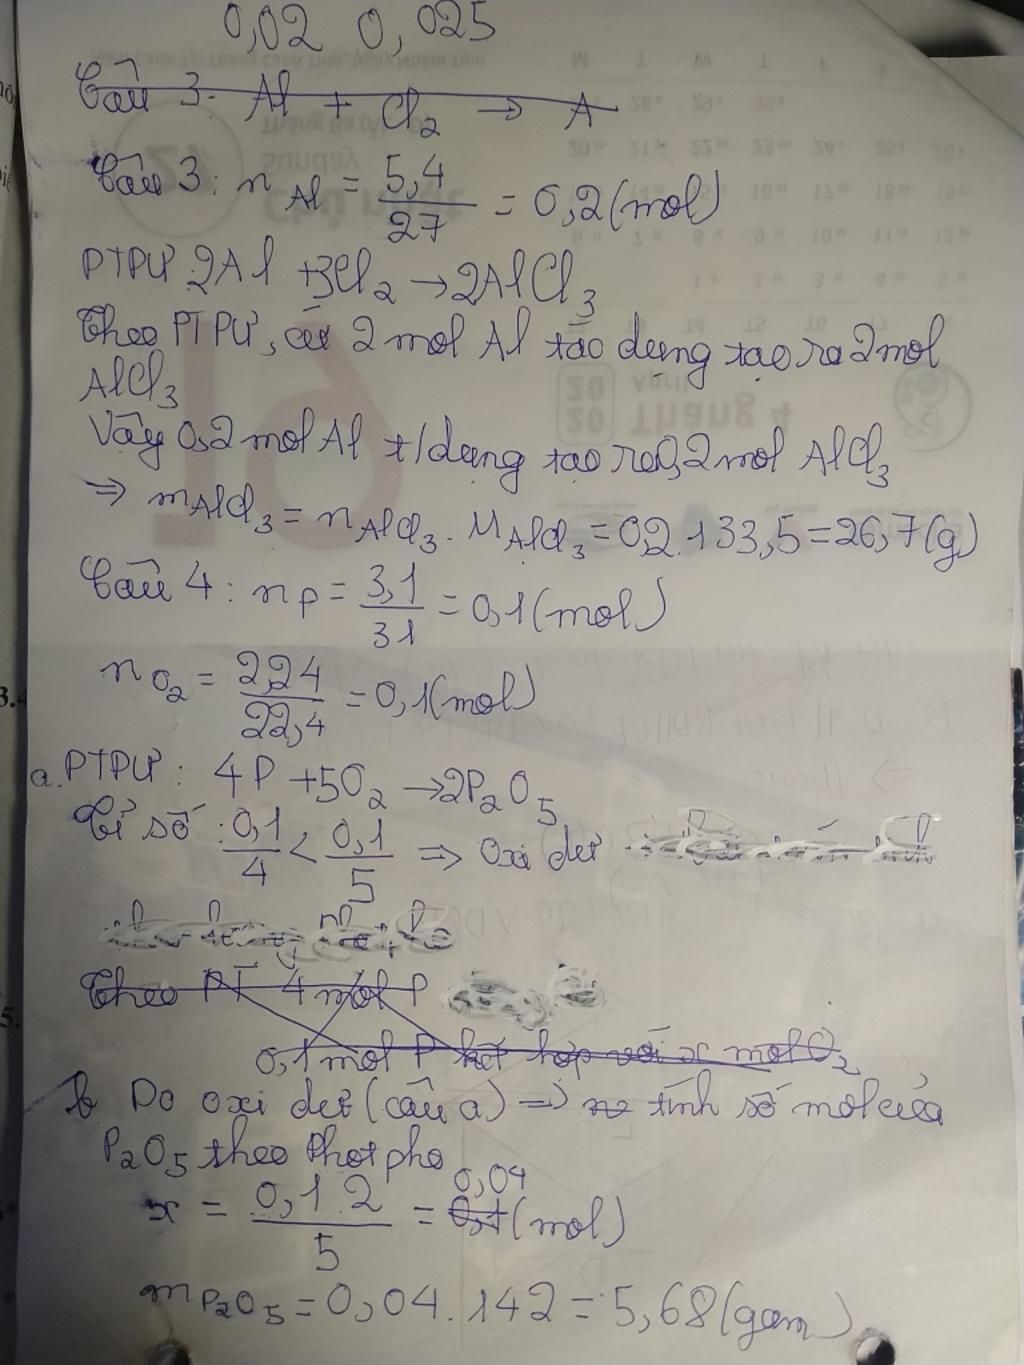 0,02 0,025
Câu 3. Al + Cl2 → A
Câu 3: n Al = 5,4 / 27 = 0,2 (mol)
PTPƯ: 2Al + 3Cl2 → 2AlCl3
Theo PTPƯ, cứ 2 mol Al tác dụng tạo ra 2 mol
AlCl3
Vậy 0,2 mol Al t/dụng tạo ra 0,2 mol AlCl3
=> mAlCl3 = nAlCl3 . MAlCl3 = 0,2.133,5 = 26,7 (g)
Câu 4: nP = 3,1 / 31 = 0,1 (mol)
nO2 = 2,24 / 22,4 = 0,1 (mol)
a. PTPƯ: 4P + 5O2 → 2P2O5
Tỉ số: 0,1 / 4 < 0,1 / 5 => Oxi dư
Theo PT 4 mol P
0,1 mol P kết hợp với x mol O2
b Do oxi dư (câu a) => tính số mol của
P2O5 theo Photpho
x = 0,1.2 / 5 = 0,04 (mol)
mP2O5 = 0,04.142 = 5,68 (gam)